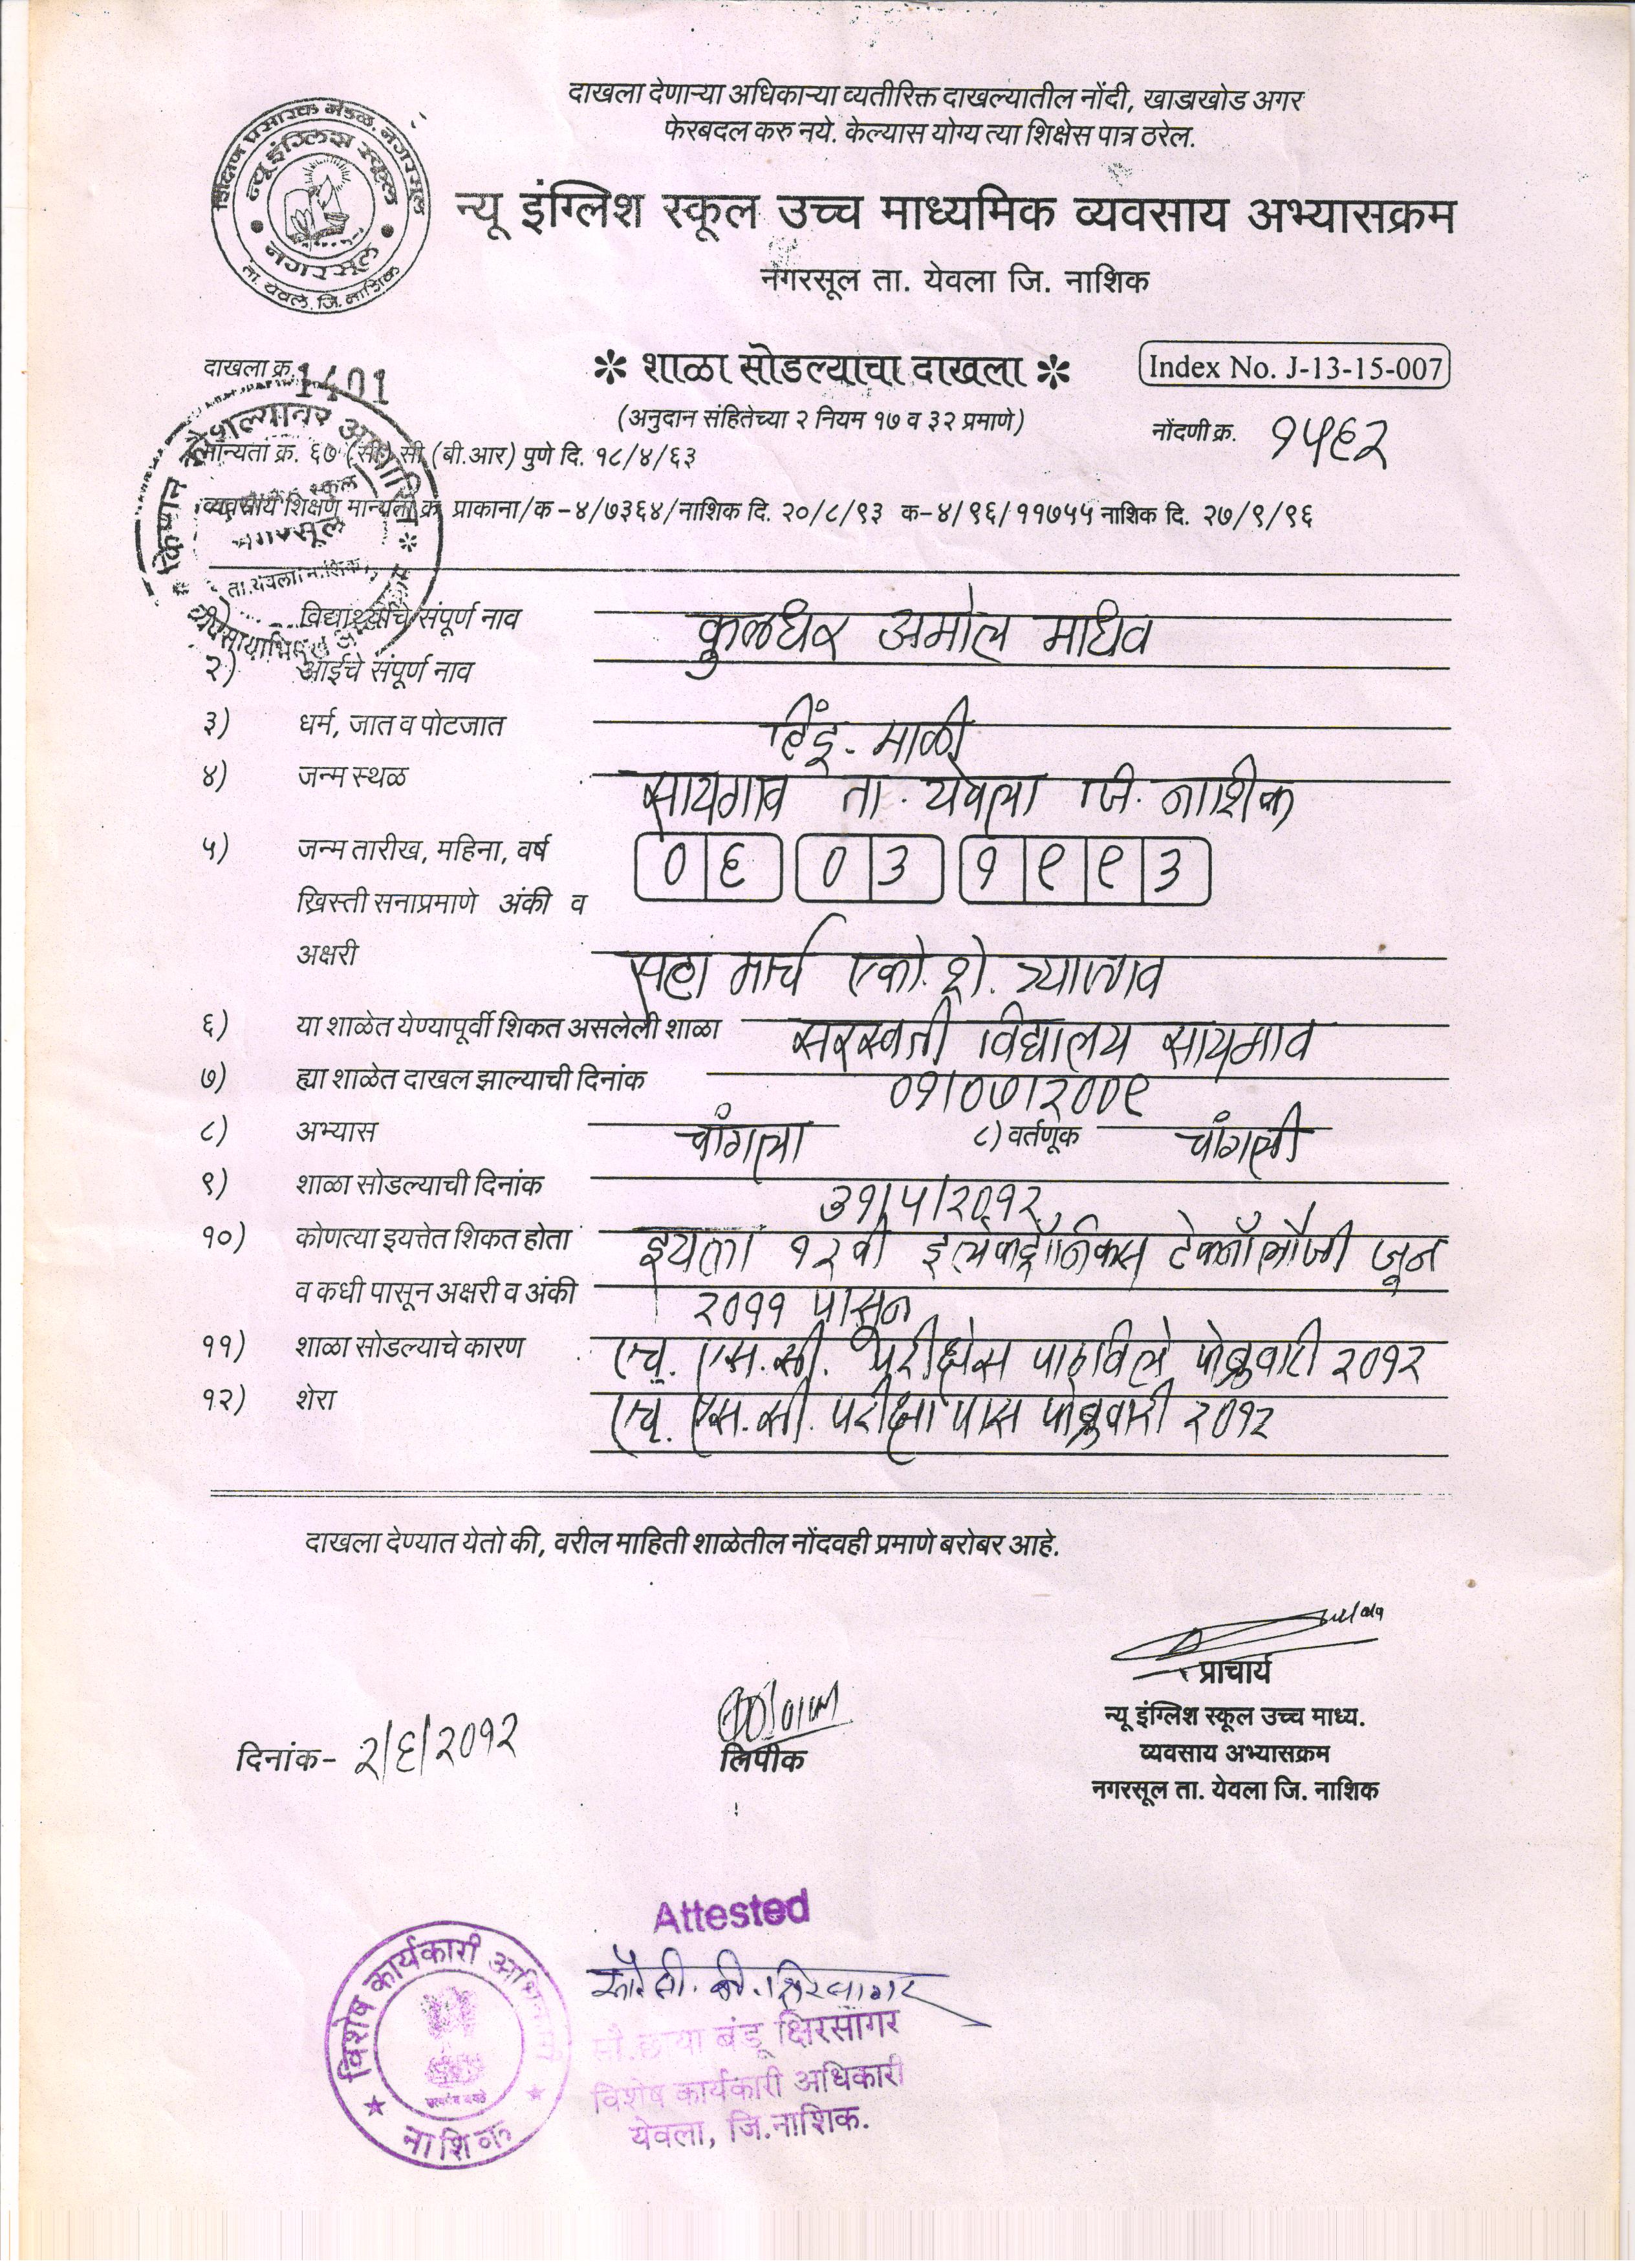 दाखला देणाऱ्या अधिकाऱ्या व्यतीरिक्त दाखल्यातील नोंदी, खाडाखोड अगर
फेरबदल करु नये. केल्यास योग्य त्या शिक्षेस पात्र ठरेल.
शिक्षण प्रसारक मंडळ, नगरसूल
न्यू इंग्लिस स्कूल
नगरसूल
ता. येवले, जि. नाशिक
न्यू इंग्लिश स्कूल उच्च माध्यमिक व्यवसाय अभ्यासक्रम
नगरसूल ता. येवला जि. नाशिक
दाखला क्र. 1401
❇ शाळा सोडल्याचा दाखला ❇
Index No. J-13-15-007
(अनुदान संहितेच्या २ नियम १७ व ३२ प्रमाणे)
नोंदणी क्र. १५६२
मान्यता क्र. ६७ (सी) सी (बी.आर) पुणे दि. १८/४/६३
व्यवसाय शिक्षण मान्यता क्र. प्राकाना/क -४/७३६४/नाशिक दि. २०/८/९३ क-४/९६/११७५५ नाशिक दि. २७/९/९६
नगरसूल
विद्यार्थ्याचे संपूर्ण नाव कुळधर अमोल माधव
२) आईचे संपूर्ण नाव
३) धर्म, जात व पोटजात हिंदू - माळी
४) जन्म स्थळ सायगाव ता. येवला जि. नाशिक
५) जन्म तारीख, महिना, वर्ष ०६ ०३ १९९३
ख्रिस्ती सनाप्रमाणे अंकी व
अक्षरी सहा मार्च एको. शे. त्र्याण्णव
६) या शाळेत येण्यापूर्वी शिकत असलेली शाळा सरस्वती विद्यालय सायगाव
७) ह्या शाळेत दाखल झाल्याची दिनांक ०१/०७/२००९
८) अभ्यास चांगला ८) वर्तणूक चांगली
९) शाळा सोडल्याची दिनांक ३१/५/२०१२
१०) कोणत्या इयत्तेत शिकत होता इयत्ता १२वी इलेक्ट्रॉनिक्स टेक्नॉलॉजी जून
व कधी पासून अक्षरी व अंकी २०११ पासून
११) शाळा सोडल्याचे कारण एच. एस. सी. परीक्षेस पाठविले फेब्रुवारी २०१२
१२) शेरा एच. एस. सी. परीक्षा पास फेब्रुवारी २०१२
दाखला देण्यात येतो की, वरील माहिती शाळेतील नोंदवही प्रमाणे बरोबर आहे.
प्राचार्य
न्यू इंग्लिश स्कूल उच्च माध्य.
दिनांक- २/६/२०१२ लिपीक व्यवसाय अभ्यासक्रम
नगरसूल ता. येवला जि. नाशिक
Attested
विशेष कार्यकारी
नाशिक
बंडू क्षिरसागर
विशेष कार्यकारी अधिकारी
येवला, जि.नाशिक.